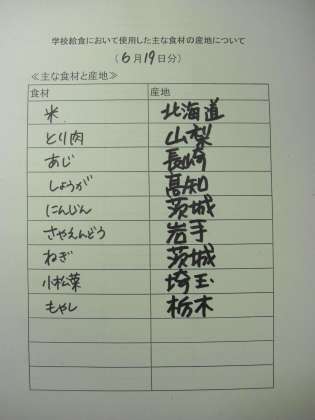 学校給食において使用した主な食材の産地について
(6月19日分)
≪主な食材と産地≫
食材 産地
米 北海道
とり肉 山梨
あじ 長崎
しょうが 高知
にんじん 茨城
さやえんどう 岩手
ねぎ 茨城
小松菜 埼玉
もやし 栃木